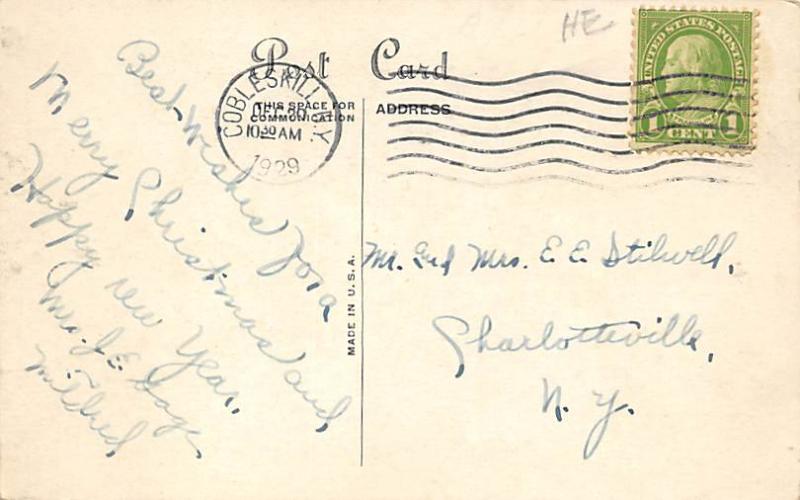 HE
Post Card
THIS SPACE FOR
COMMUNICATION
ADDRESS
COBLESKILL N.Y.
DEC 20
10 30 AM
1929
UNITED STATES POSTAGE
1 CENT 1
Best Wishes for a
Merry Christmas and
Happy New Year.
Mrs. J. E.
Mildred
MADE IN U.S.A.
Mr. and Mrs. E. E. Stilwell,
Charlotteville,
N. Y.